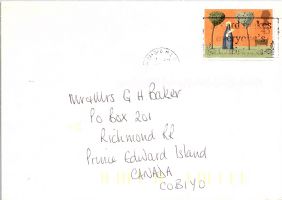 Mr & Mrs G H Baker
PO Box 201
Richmond RR
Prince Edward Island
CANADA
COB IYO